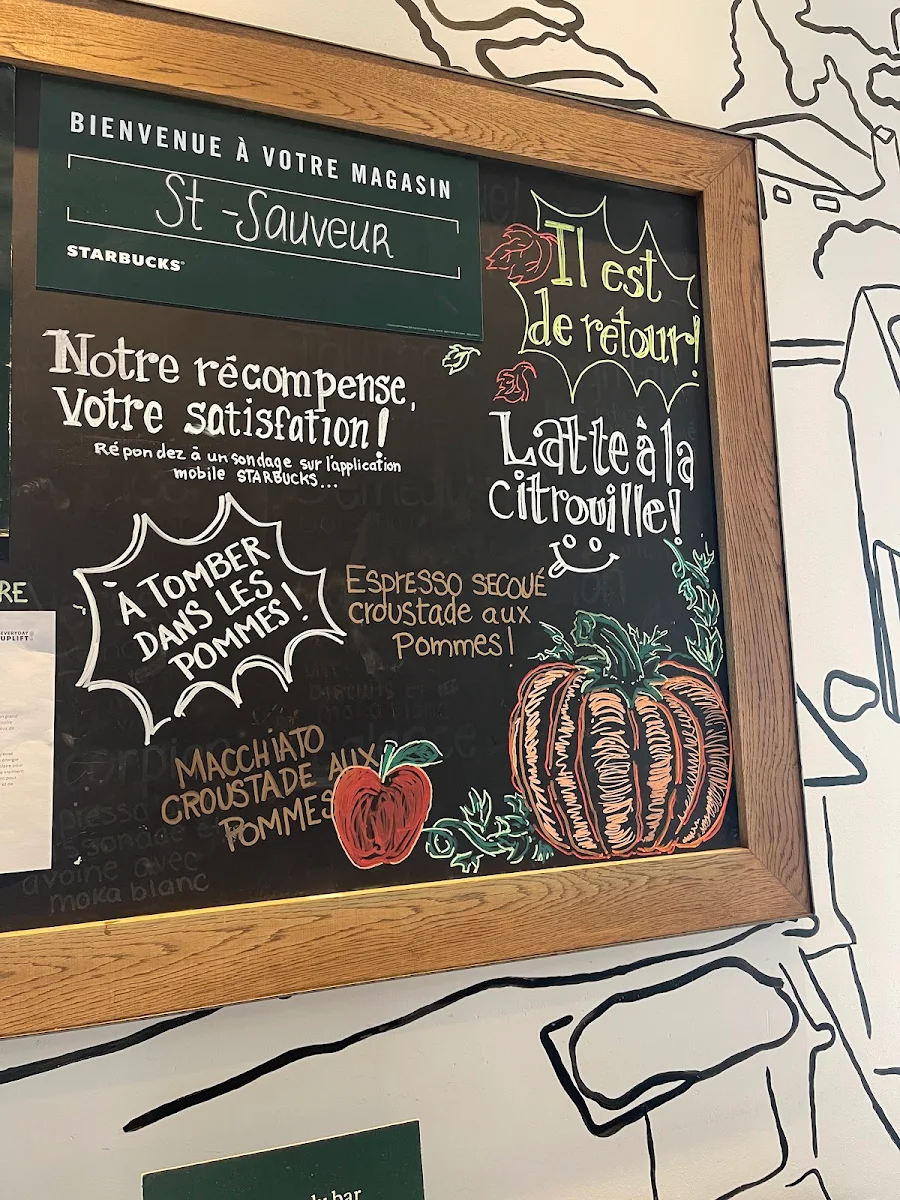 BIENVENUE À VOTRE MAGASIN
St-Sauveur
STARBUCKS
Notre récompense,
Votre satisfation!
Répondez à un sondage sur l'application
mobile STARBUCKS...
Il est
de retour!
Latte à la
citrouille!
À TOMBER
DANS LES
POMMES!
ESPRESSO SECOUÉ
croustade aux
Pommes!
MACCHIATO
CROUSTADE AUX
POMMES
RE
EVERYDAY
UPLIFT
avoine avec
moka blanc
bar